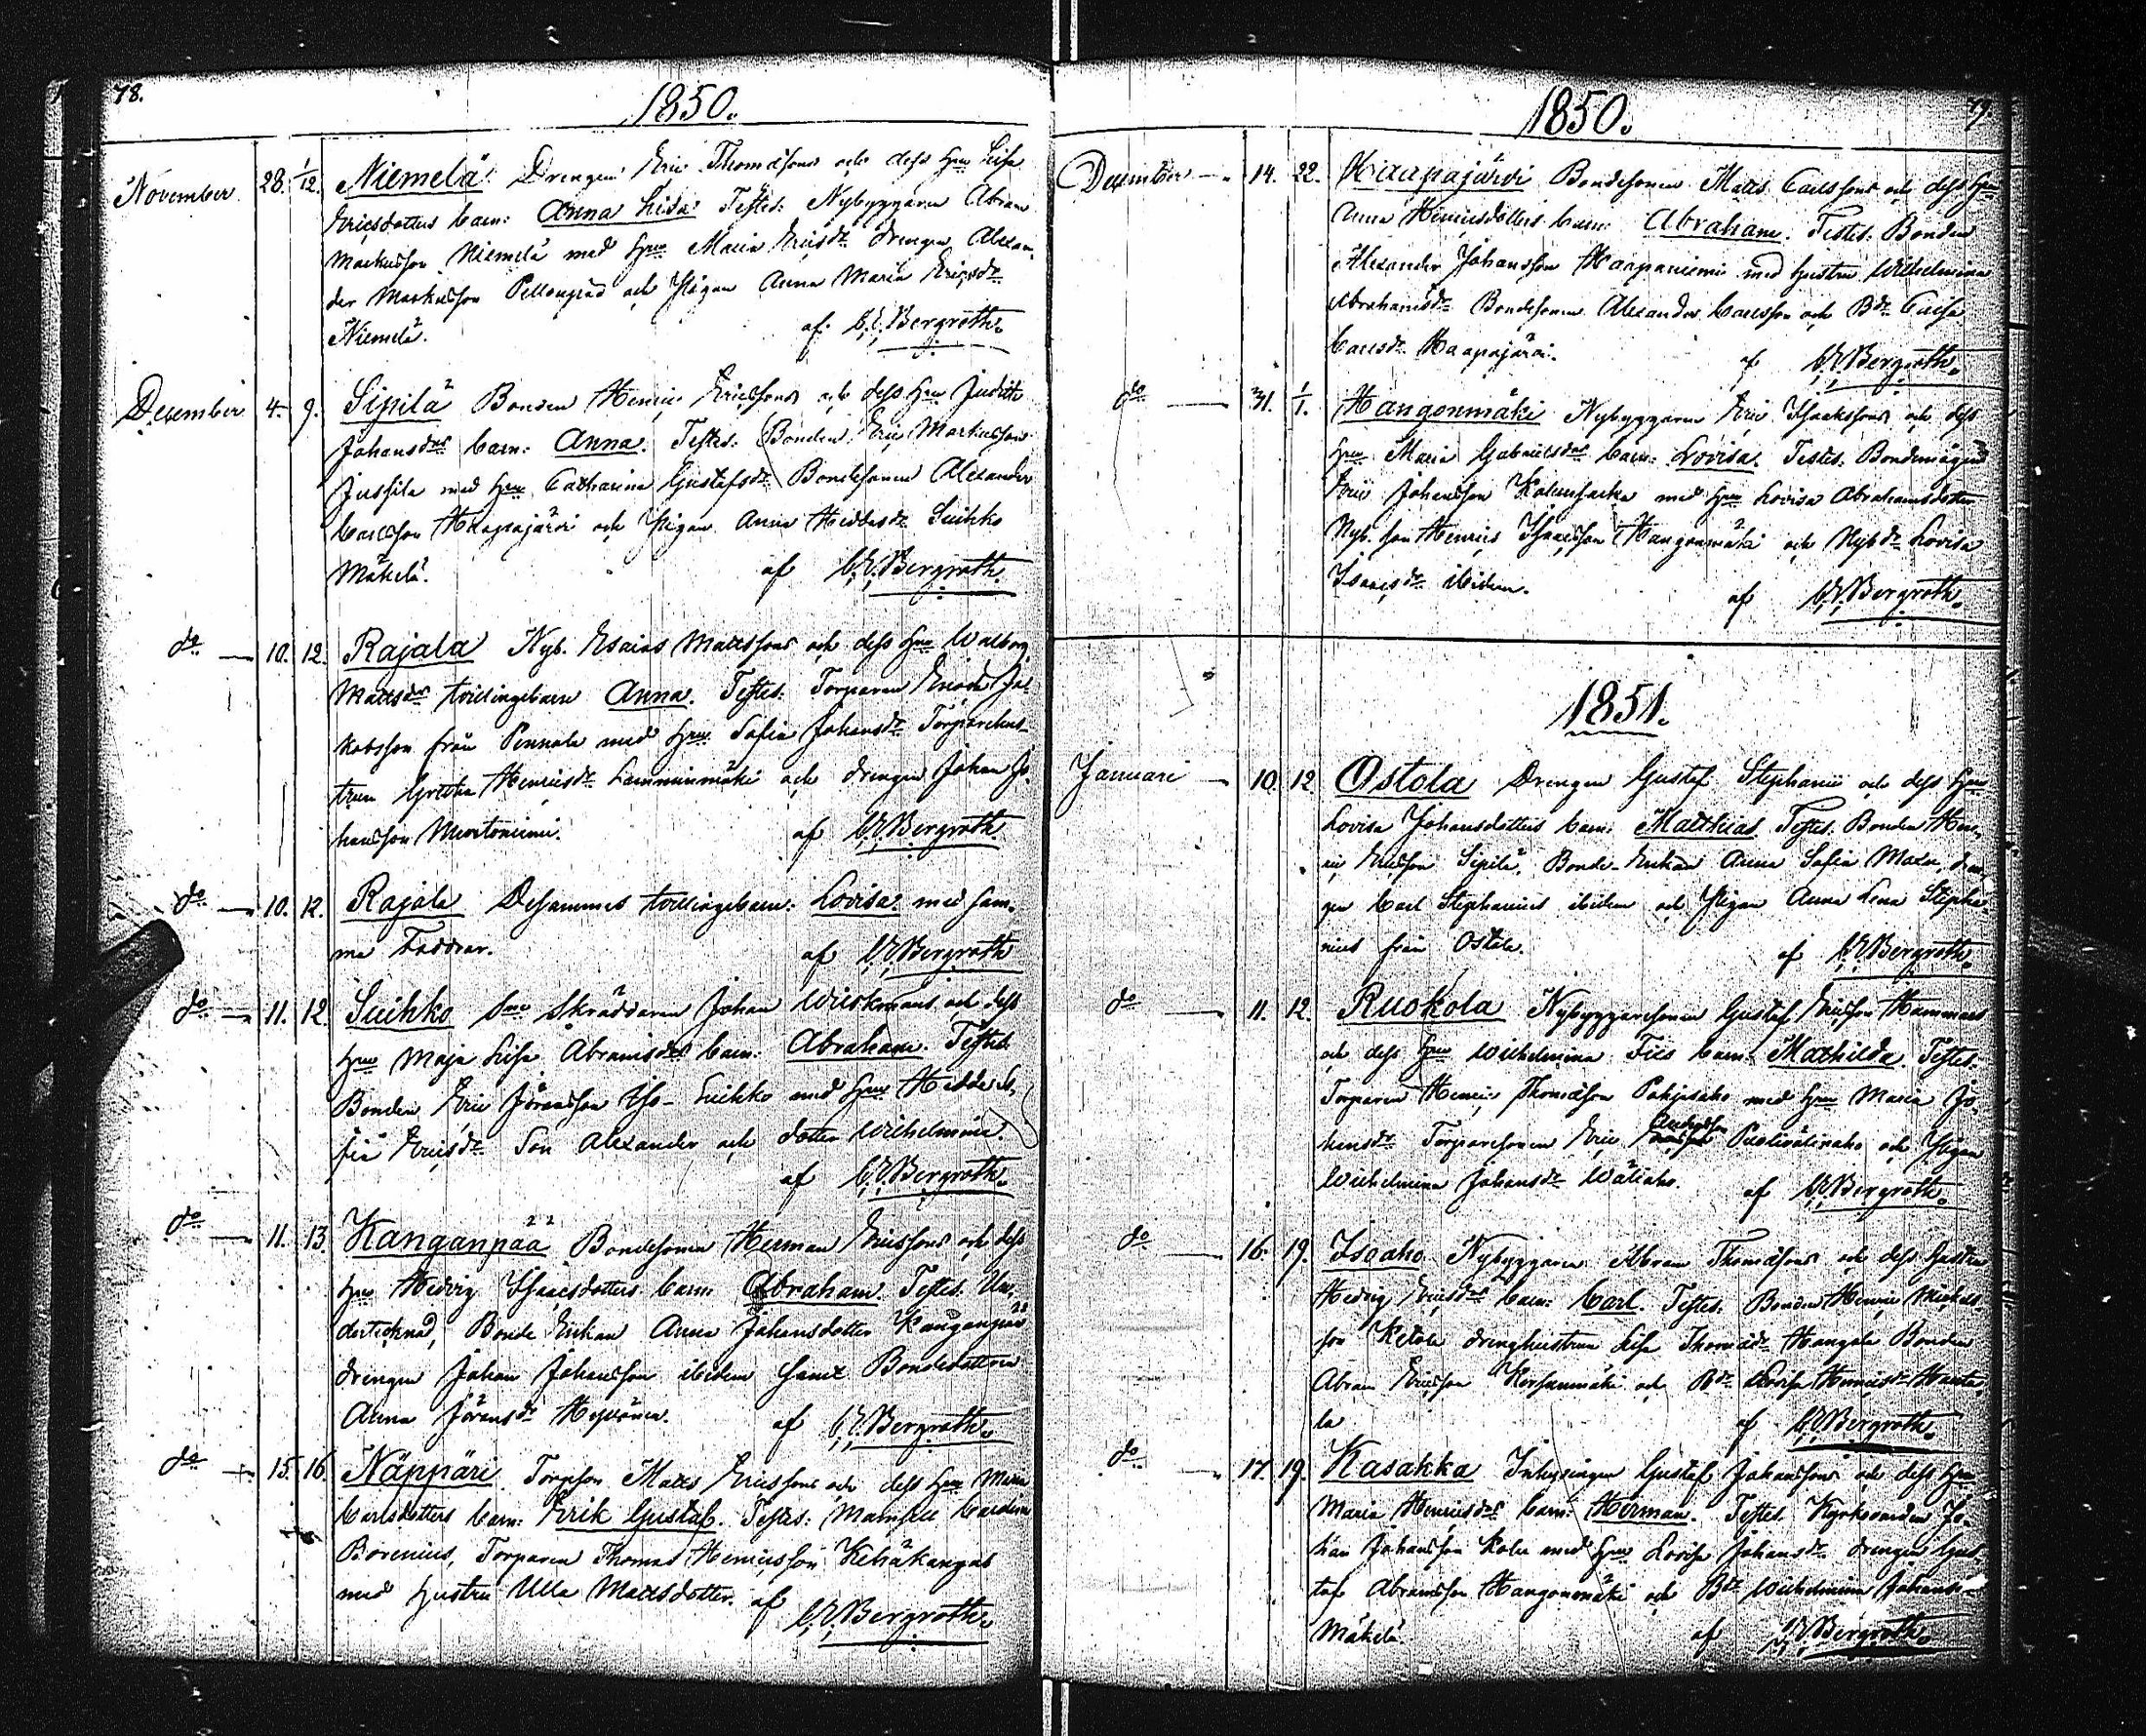 78.
1850.
November 28. 1/12. Niemelä. Drengen Eric Thomasons och dess Hru Lisa
Ericsdotters barn: Anna Lisa. Testes: Nybyggaren Abram
Markusson Niemelä med Hru Maria Ericsdr drengen Alexan-
der Markusson Pellonpää och Pigan Anna Maria Ericsdr
Niemelä. af C.E. Bergroth.
December 4. 9. Sipilä Bonden Henric Ericssons och dess Hru Judith
Johansdrs barn: Anna. Testes: Bonden Eric Markusson
Jussila med Hru Catharina Gustafsdr Bondesonen Alexander
Carlsson Haapajärvi och Pigan Anna Suihko
Mäkelä. af C.E. Bergroth.
do 10. 12. Rajala Nyb. Esaias Mattssons och dess Hru Walborg
Mattsdrs tvillingebarn Anna. Testes. Torparen Enoch Ja-
kobsson från Pennala med Hru Sofia Johansdr Torparehus-
trun Gretha Henricsdr Lamminmäki och drengen Johan Jo-
hansson Murtoniemi. af C.E. Bergroth
do 10. 12. Rajala Desammes tvillingebarn: Lovisa med sam-
ma Faddrar. af C.E. Bergroth
do 11. 12. Suihko Skräddaren Johan och dess
Hru Maja Lisa Abramsdrs barn: Abraham. Testes
Bonden Eric Göransson Iso-Suihko med Hru Hedda So-
fia Ericsdr Son Alexander och dotter Wilhelmina.
af C.E. Bergroth.
do 11. 13. Kanganpää Bondesonen Herman Ericssons och dess
Hru Hedvig Isaacsdotters barn: Abraham. Testes. Un-
dertecknad, Bonde Enkan Anna Johansdotter Kanganpää
drengen Johan Johansson ibidem samt Bondedottren
Anna Göransdr af C.E. Bergroth.
do 15. 16. Näppäri. Torpson Matts Ericssons och dess Hru Maria
Carlsdotters barn: Erik Gustaf. Testes: Mamsell Carolina
Borenius, Torparen Thomas Henricsson Kehäkangas
med hustru Ulla Mattsdotter. af C.E. Bergroth.
79.
1850.
December 14. 22. Haapajärvi Bondesonen Matts Carlssons och dess Hru
Anna Henricsdotters barn: Abraham. Testes: Bonden
Alexander Johansson Haapaniemi med hustru Wilhelmina
Abrahamsdr Bondesonen Alexander Carlsson och Bdr Caisa
Carlsdr Haapajärvi. af C.E. Bergroth.
do 31. 1/1. Hangonmäki Nybyggaren Eric Isaakssons och dess
Hru Maria Gabrielsdrs barn: Lovisa. Testes. Bondemågen
Eric Johansson med Hru Lovisa Abrahamsdotter
Nyb. son Henrics Isaacsson Hangonmäki och Nyb dr Lovisa
Isaacsdr ibidem. af C.E. Bergroth.
1851.
Januari 10. 12 Ostola Drengen Gustaf Stephanii och dess Hru
Lovisa Johansdotters barn: Matthias. Testes. Bonden Hen-
ric Ericsson Sipilä, Bonde-Enkan Anna Sofia dren-
gen Carl Stephanius ibidem och Pigan Anna Lena Stepha-
nius från Ostola. af C.E. Bergroth.
do 11. 12. Ruokola Nybyggaresonen Gustaf Ericsson Hammars
och dess Hru Wilhelmina barn: Mathilda. Testes.
Torparen Henric Thomasson Pohjisaho med Hru Maria Jo-
hansdr Torparesonen Eric och Pigan
Wilhelmina Johansdr Wäliaho. af C.E. Bergroth.
do 16. 19. Isoaho. Nybyggaren Abram Thomasons och dess hustru
Hedvig Ericsdrs barn: Carl. Testes: Bonden Henric Mickels-
son Ketola drenghustrun Lisa Thomasdr Hangola Bonden
Abram Ericsson och Bdr Lovisa Henricsdr Hauta-
la af C.E. Bergroth.
do 17. 19. Kasakka Inhysingen Gustaf Johanssons och dess Hru
Maria Henricsdrs barn: Herman. Testes. Kyrkovärden Jo-
han Johansson med Hru Lovisa Johansdr drengen Gus-
taf Abramsson Hangonmäki och Bdr Wilhelmina Johansdr
Mäkelä. af C.E. Bergroth.